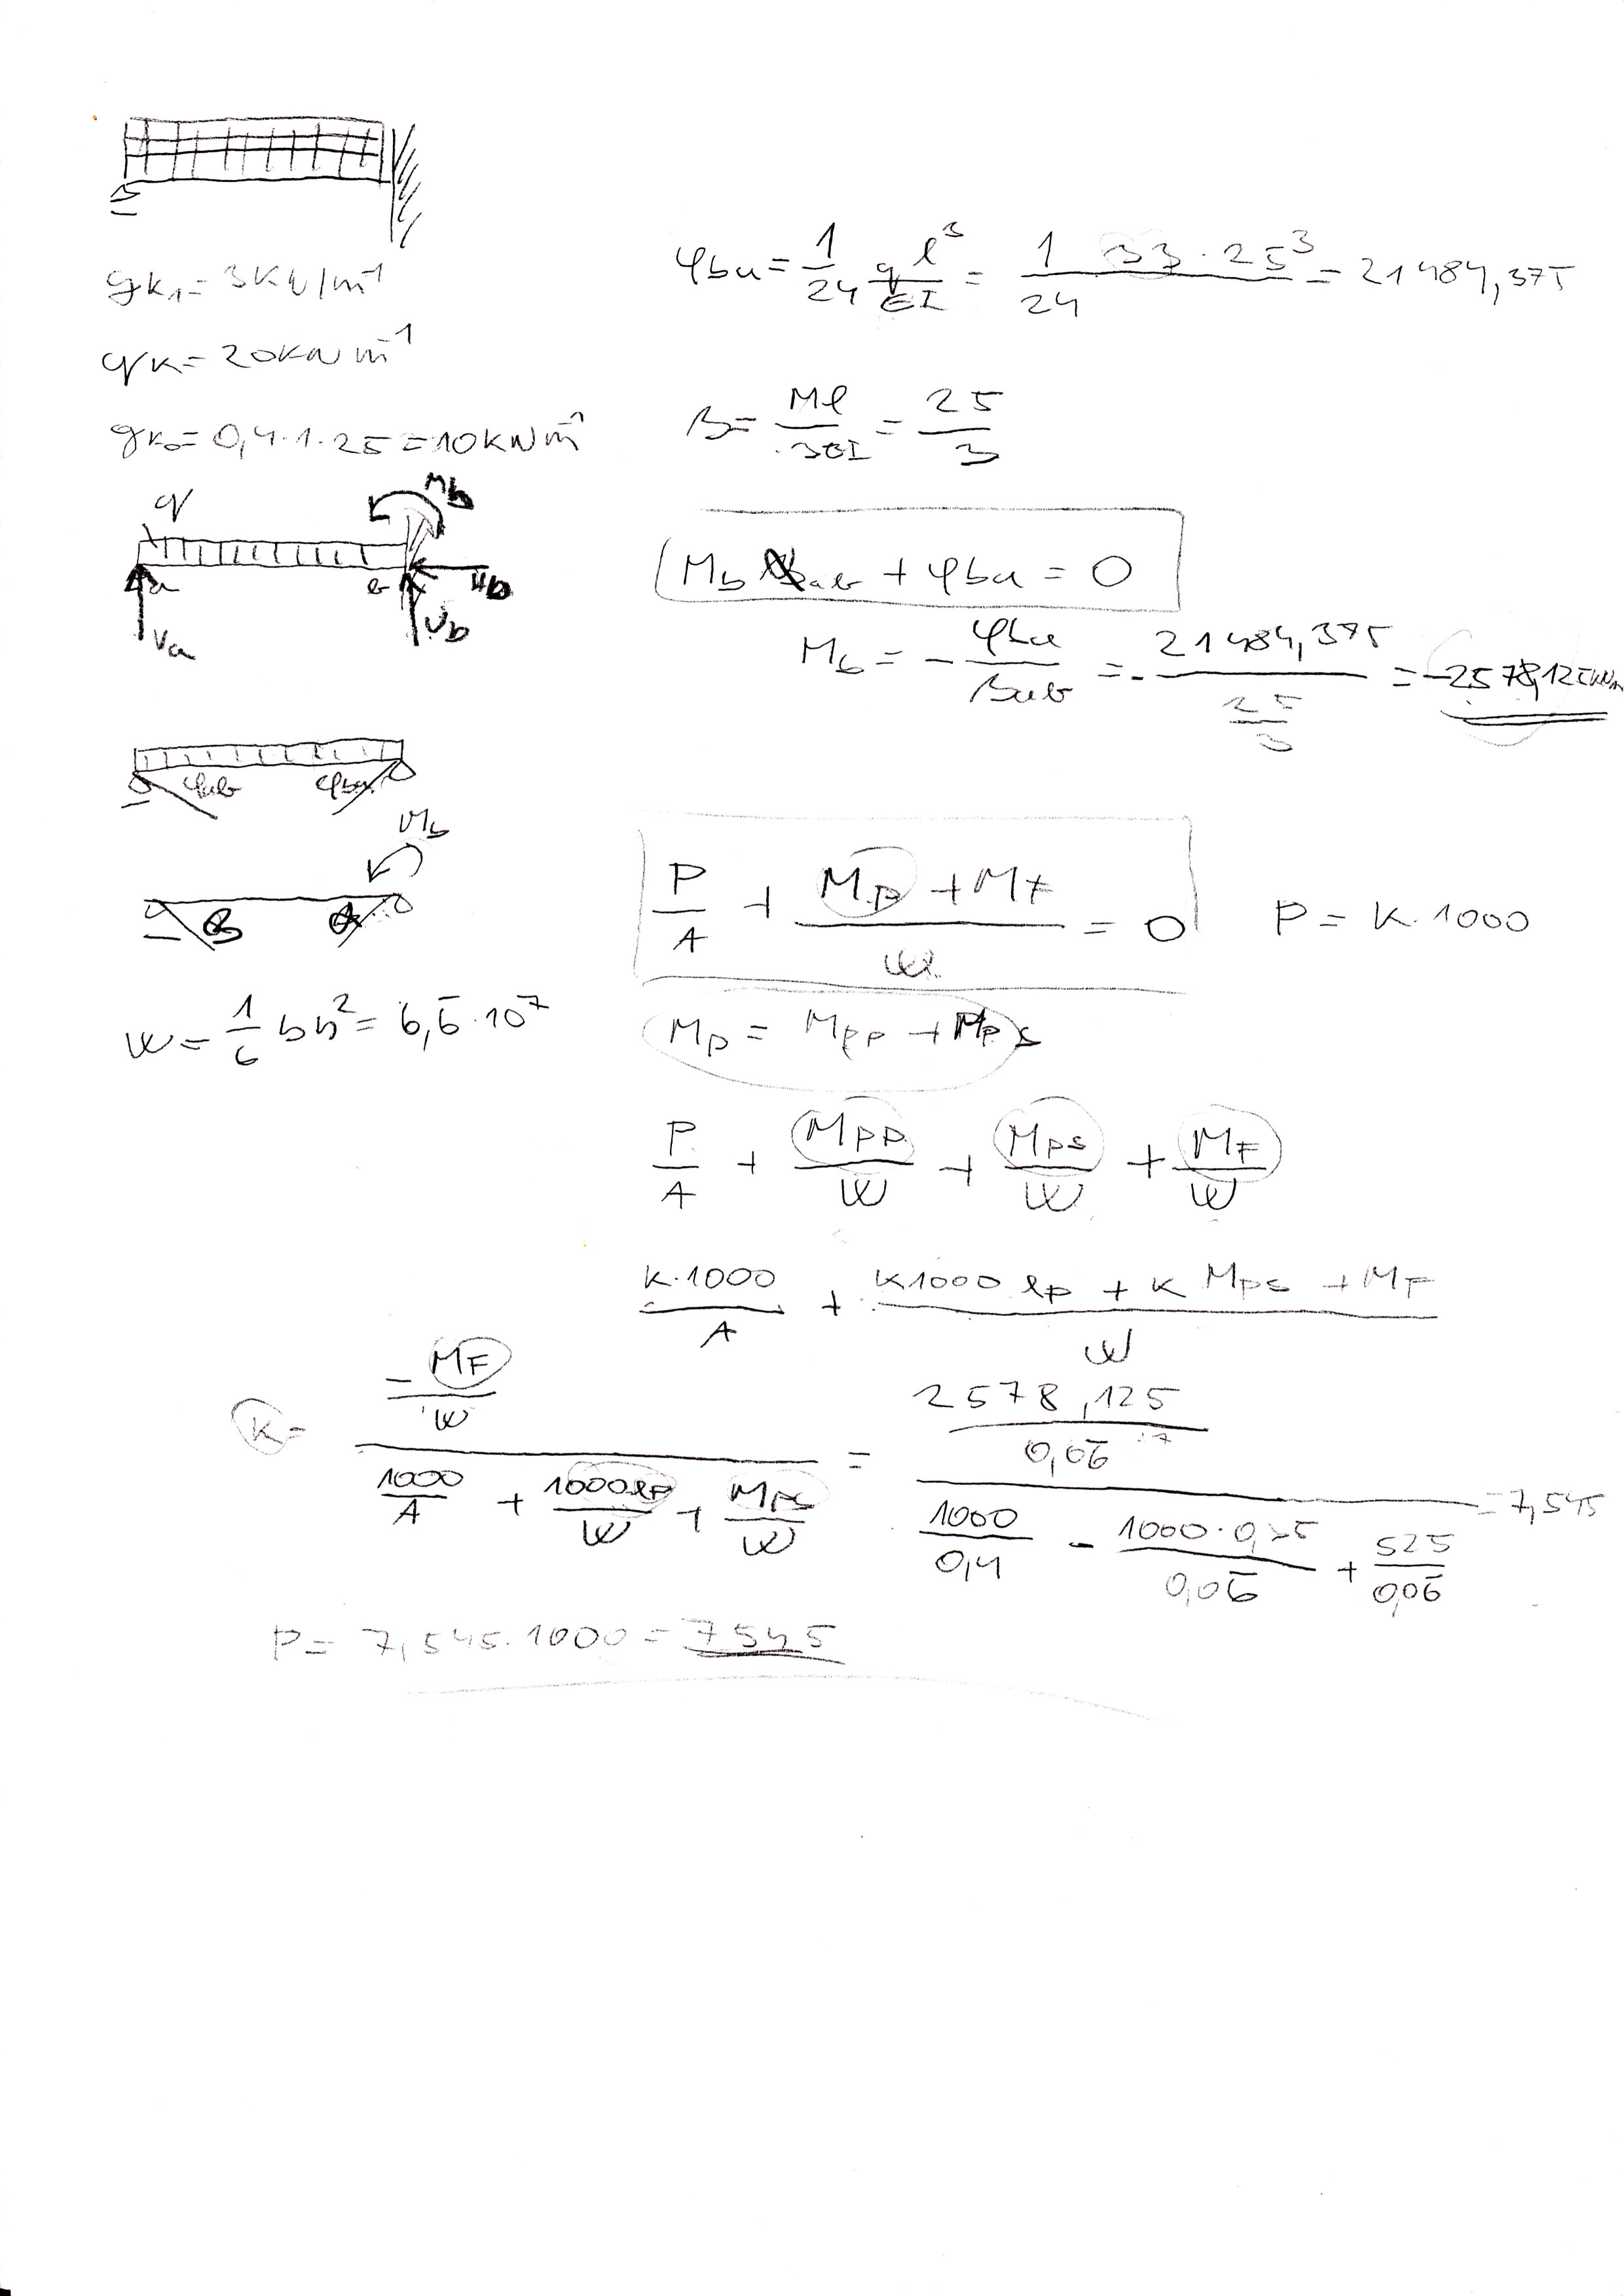 gk₁ = 3KN/m⁻¹
qk = 20KN m⁻¹
gk₀ = 0,4·1·25 = 10KNm⁻¹
q
Mb
a
b
Hb
Va
Vb
φab φba
Mb
W = 1/6 bh² = 6,6̅·10⁷
φba = 1/24 q l³/EI = 1/24 33·25³ = 21484,375
β = Ml/3EI = 25/3
Mb βab + φba = 0
Mb = - φba/βab = - 21484,375/(25/3) = -2578,125kNm
P/A + (Mp + MF)/W = 0 P = K·1000
Mp = Mpp + Mps
P/A + Mpp/W + Mps/W + MF/W
K·1000/A + (K1000 ep + K Mps + MF)/W
K = (-MF/W)/(1000/A + 1000ep/W + Mps/W) = (2578,125/0,06̅)/(1000/0,4 - 1000·0,35/0,06̅ + 525/0,06̅) = 7,545
P = 7,545·1000 = 7545